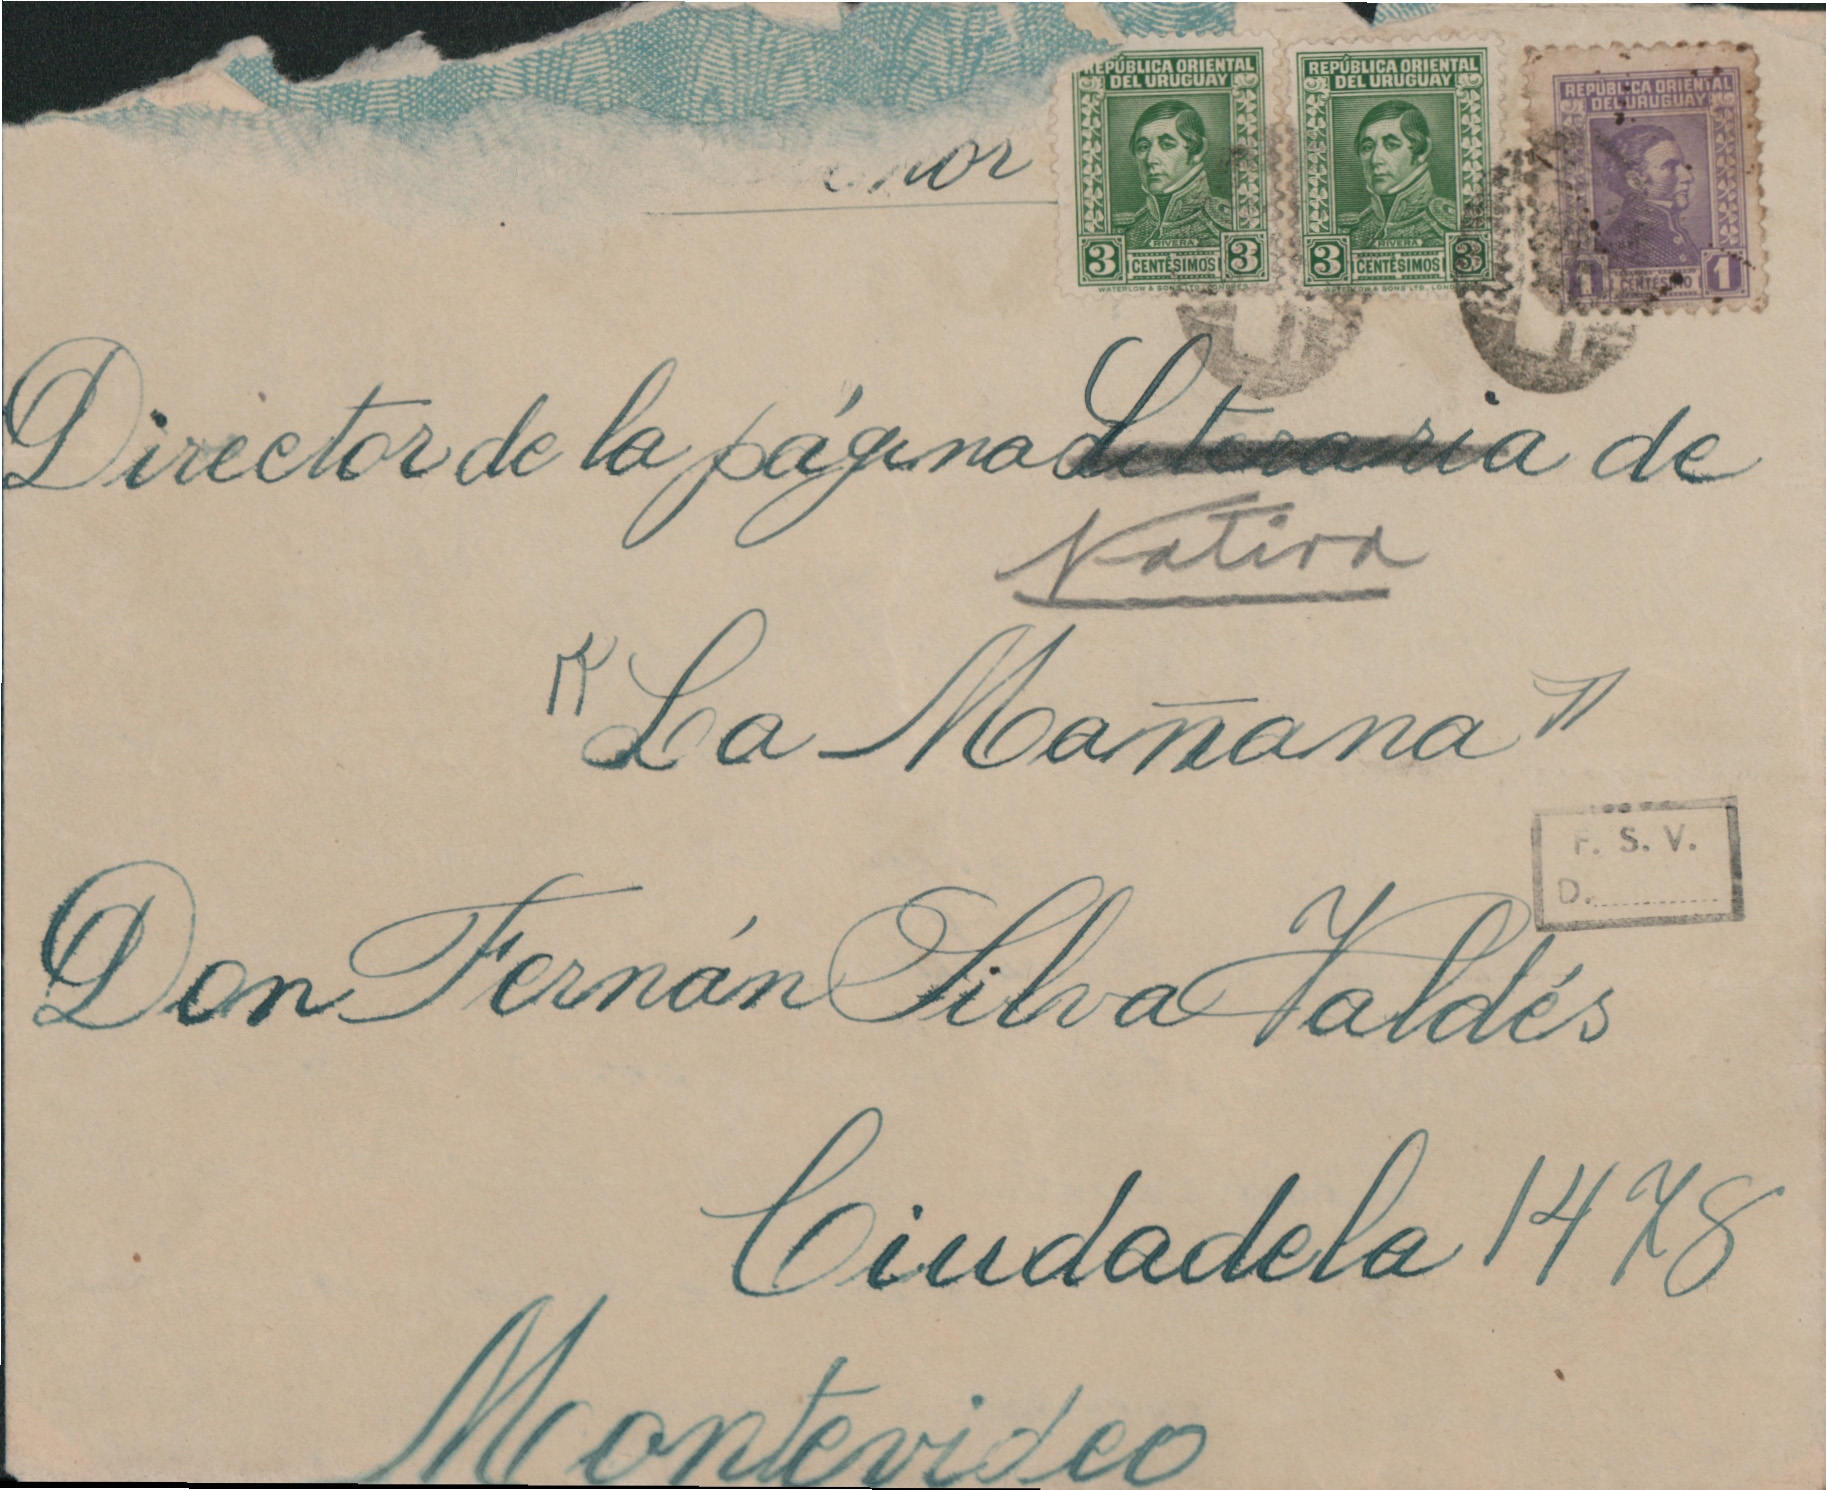 REPÚBLICA ORIENTAL
DEL URUGUAY
RIVERA
3 CENTÉSIMOS 3
WATERLOW & SONS LTD. LONDRES
REPÚBLICA ORIENTAL
DEL URUGUAY
RIVERA
3 CENTÉSIMOS 3
WATERLOW & SONS LTD., LOND
REPÚBLICA ORIENTAL
DEL URUGUAY
1 CENTÉSIMO 1
Director de la página Literaria de
Nativa
"La Mañana"
F. S. V.
D.
Don Fernán Silva Valdés
Ciudadela 1478
Montevideo